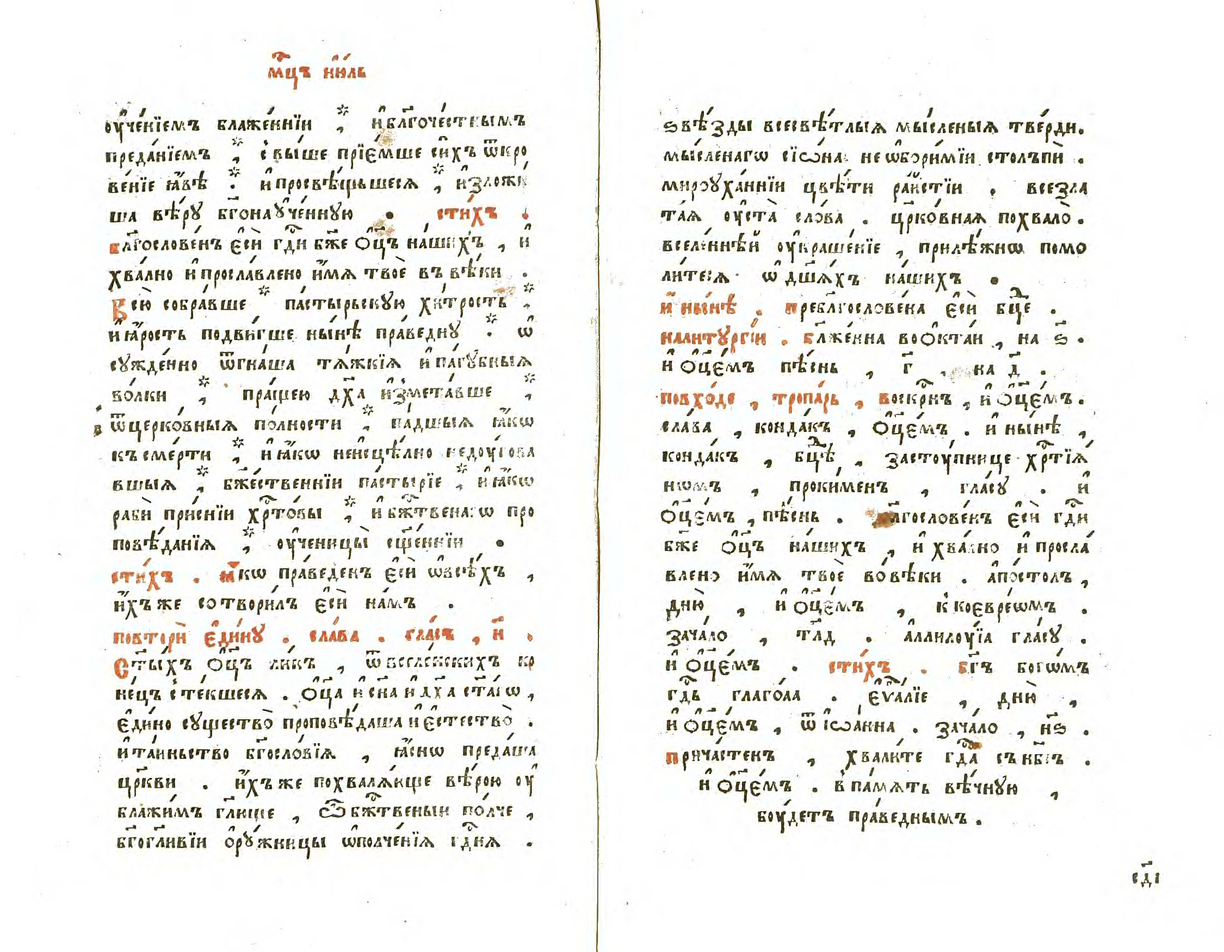 мⷭ҇цъ ию́ль
оу҆че́нїемъ блаже́ннїи ⁘ и҆бл҃гоче́стнымъ
преда́нїемъ ⁘ свы́ше прїе́мше си́хъ ѿкро
ве́нїе ꙗ҆́вѣ ⁘ и҆просвѣ́щьшеся ⁘ и҆зложи́
ша вѣ́ру бг҃онаꙋче́нную . сти́хъ .
бл҃гослове́нъ є҆сѝ гдⷭ҇и бж҃е ѻ҆ц҃ъ на́шихъ , и҆
хва́лно и҆просла́влено и҆́мя твоѐ въ вѣ́ки .
Всю̀ собра́вше ⁘ па́стырьскую хи́трость ⁘
и҆ ꙗ҆́рость подви́гше ны́нѣ пра́ведну ⁘ ѡ҆
сужде́нно ѿгна́ша тя́жкїя и҆па́губныя
во́лки ⁘ пра́щею дх҃а и҆змета́вше ⁘
ѿцерко́вныя по́лности ⁘ па́дшыя ꙗ҆́кѡ
къ сме́рти ⁘ и҆ ꙗ҆́кѡ неисцѣ́лно недоу́гова
вшыя ⁘ бж҃е́ственнїи па́стырїе ⁘ и҆ ꙗ҆́кѡ
рабѝ при́снїи хрⷭ҇то́вы ⁘ и҆ бжⷭ҇твенагѡ про
повѣ́данїя ⁘ оу҆ченицы̀ сщ҃е́ннїи .
сти́хъ . ꙗ҆́кѡ пра́веденъ є҆сѝ ѡ҆всѣ́хъ ,
и҆́хъ же сотвори́лъ є҆сѝ на́мъ .
повторѝ є҆ди́ну . сла́ва . гла́съ , и҃ .
Ст҃ы́хъ ѻ҆ц҃ъ ли́къ , ѿ вселе́нскихъ ко
не́цъ сте́кшеся . ѻ҆ц҃а и҆ сн҃а и҆ дх҃а ст҃а́гѡ ,
є҆ди́но существо̀ проповѣ́даша и҆ є҆стество̀ .
и҆ та́иньство бг҃осло́вїя , ꙗ҆́снѡ преда́ша
цр҃кви . и҆́хъ же похваля́юще вѣ́рою оу҆
блажи́мъ гл҃юще , ѽ бжⷭ҇твеныи по́лче ,
бг҃огл҃и́вїи ѻ҆ру́жницы ѡ҆полче́нїя гдⷭ҇ня .
ѕвѣ́зды всесвѣ́тлыя мы́сленыя тве́рди .
мы́сленагѡ сїѡ́на не ѡ҆бори́мїи столпѝ .
мироуха́ннїи цвѣ́ти ра́йстїи . всезла
та́я оу҆ста̀ сло́ва . цр҃ко́вная похвало̀ .
вселе́ннѣй оу҆краше́нїе , прилѣ́жнѡ помо
ли́теся ѡ҆ дш҃а́хъ на́шихъ .
и҆ ны́нѣ . пребл҃гослове́на є҆сѝ бцⷣе .
налитурги́и . бл҃же́нна воѻ҆кта́и , на ѕ҃ .
и҆ ѻ҆ц҃е́мъ пѣ́снь , г҃ . на д҃ .
повхо́де , тропа́рь , воскр҃нъ , и҆ ѻ҆ц҃е́мъ .
сла́ва , конда́къ , ѻ҆ц҃е́мъ . и҆ ны́нѣ ,
конда́къ , бцⷣѣ , засту́пнице хрⷭ҇тїя́
нѡмъ , проки́менъ , гла́су . и҆
ѻ҆ц҃е́мъ , пѣ́снь . бл҃гослове́нъ є҆сѝ гдⷭ҇и
бж҃е ѻ҆ц҃ъ на́шихъ , и҆ хва́лно и҆ просла́
влено и҆́мя твоѐ во вѣ́ки . а҆по́столъ ,
дню̀ , и҆ ѻ҆ц҃е́мъ , к коєвре́ѡмъ .
зача́ло , тл҃д . а҆ллилоу́їа гла́су .
и҆ ѻ҆ц҃е́мъ . сти́хъ . бг҃ъ бого́мъ
гдⷭ҇ь глаго́ла . є҆ѵⷢ҇алїе , дню̀ ,
и҆ ѻ҆ц҃е́мъ , ѿ їѡа́нна . зача́ло , н҃ѕ .
прича́стенъ , хвали́те гдⷭ҇а съ нб҃съ .
и҆ ѻ҆ц҃е́мъ . в па́мять вѣ́чную ,
бу́детъ пра́веднымъ .